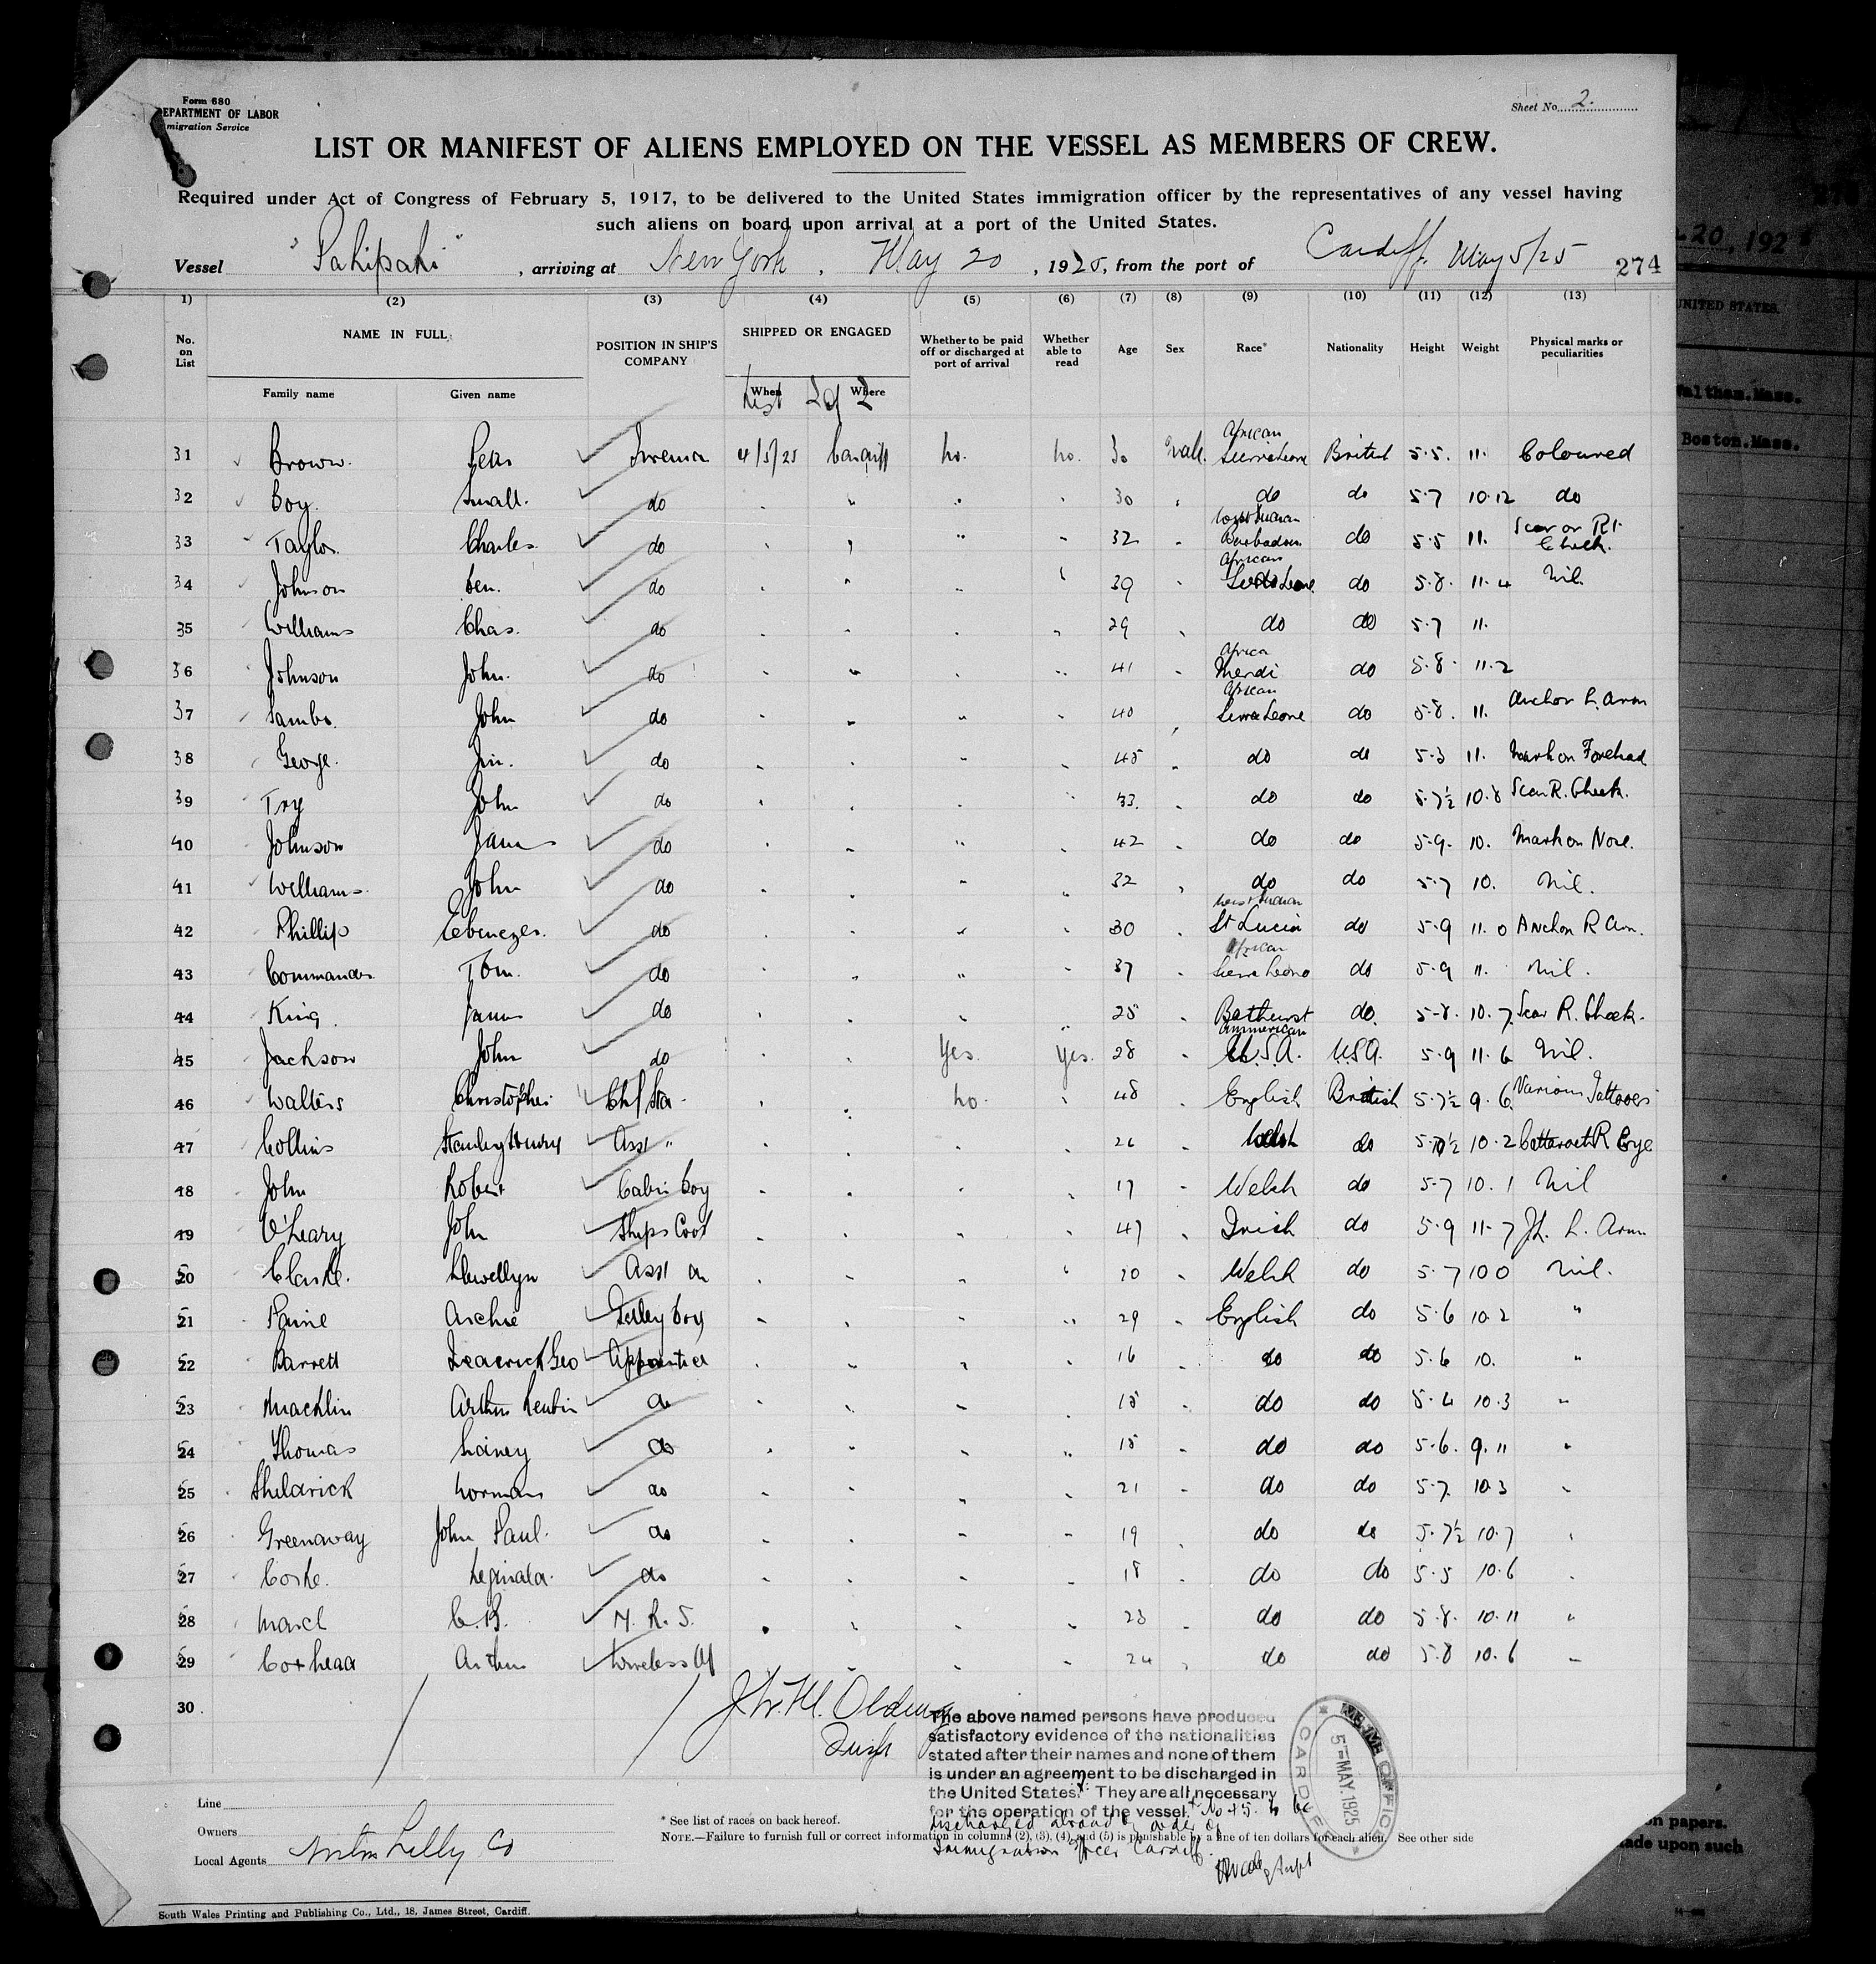 Form 680
DEPARTMENT OF LABOR
migration Service
Sheet No. 2.
LIST OR MANIFEST OF ALIENS EMPLOYED ON THE VESSEL AS MEMBERS OF CREW.
Required under Act of Congress of February 5, 1917, to be delivered to the United States immigration officer by the representatives of any vessel having
such aliens on board upon arrival at a port of the United States.
Vessel "Pahipahi", arriving at New York, May 20, 1925, from the port of Cardiff. May 5/25 274
1) (2) (3) (4) (5) (6) (7) (8) (9) (10) (11) (12) (13)
No. on List NAME IN FULL POSITION IN SHIP'S COMPANY SHIPPED OR ENGAGED Whether to be paid off or discharged at port of arrival Whether able to read Age Sex Race* Nationality Height Weight Physical marks or peculiarities
Family name Given name When Where
List 2 of 2
31 Brown. 4/5/25 Cardiff no. no. 30 Male African Sierra Leone British 5.5. 11. Coloured
32 Boy. Small. do 30 do do 5.7 10.12 do
33 Taylor. Charles. do 32 West Indian Barbados do 5.5 11. Scar on Rt. Cheek.
34 Johnson Ben. do 39 African Sierra Leone do 5.8. 11.4 Nil.
35 Williams Chas. do 29 do do 5.7 11.
36 Johnson John. do 41 Africa Mendi do 5.8. 11.2
37 Sambo. John do 40 African Sierra Leone do 5.8. 11. Anchor L. Arm
38 George. Jim. do 45 do do 5.3 11. Mark on Forehead
39 Try John do 33. do do 5.7½ 10.8 Scar R. Cheek.
40 Johnson James do 42 do do 5.9. 10. Mark on Nose.
41 Williams. John do 32 do do 5.7 10. Nil.
42 Phillip Ebenezer. do 30 West Indian St Lucia do 5.9 11.0 Anchor R Arm.
43 Commander Tom. do 37 African Sierra Leone do 5.9 11. Nil.
44 King. James do 25 Bathurst do. 5.8. 10.7. Scar R. Cheek.
45 Jackson John do Yes. Yes. 28 American U.S.A. U.S.A. 5.9 11.6 Nil.
46 Walters Christopher Chf Std. no. 48 English British 5.7½ 9.6 Various Tattooes
47 Collins Stanley Henry Asst " 26 Welsh do 10.2 Cattaract R Eye
48 John Robert Cabin boy 17 Welsh do 5.7 10.1 Nil
49 O'Leary John Ships Cook 47 Irish do 5.9 11.7 L. Arm
50 Clarke. Llewellyn Asst do 20 Welsh do 5.7 10 0 Nil.
51 Paine Archie Galley boy 29 English do 5.6 10.2 "
52 Barrett Frederick Geo Apprentice 16 do do 5.6 10. "
53 Macklin Arthur Reubin do 18 do do 5.4 10.3 "
54 Thomas Sidney do 18 do do 5.6. 9.11 "
55 Sheldrick Norman do 21 do do 5.7. 10.3 "
56 Greenaway John Paul. do 19 do do 5.7½ 10.7
57 Reginald. do 18 do do 5.5 10.6
58 C.B. 23 do do 5.8. 10.11 "
59 Coxhead Arthur Wireless Op 24 do do 5.8 10.6 "
30.
The above named persons have produced
satisfactory evidence of the nationalities
stated after their names and none of them
is under an agreement to be discharged in
the United States. They are all necessary
for the operation of the vessel. No 45. to be
discharged abroad by order of
Immigration Officer Cardiff.
MARINE OFFICE
5 MAY. 1925
CARDIFF
Line
Owners
Local Agents Norton Lilly Co
* See list of races on back hereof.
NOTE.—Failure to furnish full or correct information in columns (2), (3), (4) and (5) is punishable by a fine of ten dollars for each alien. See other side
South Wales Printing and Publishing Co., Ltd., 18, James Street, Cardiff.
20, 192
UNITED STATES.
Waltham. Mass.
Boston. Mass.
on papers.
made upon such